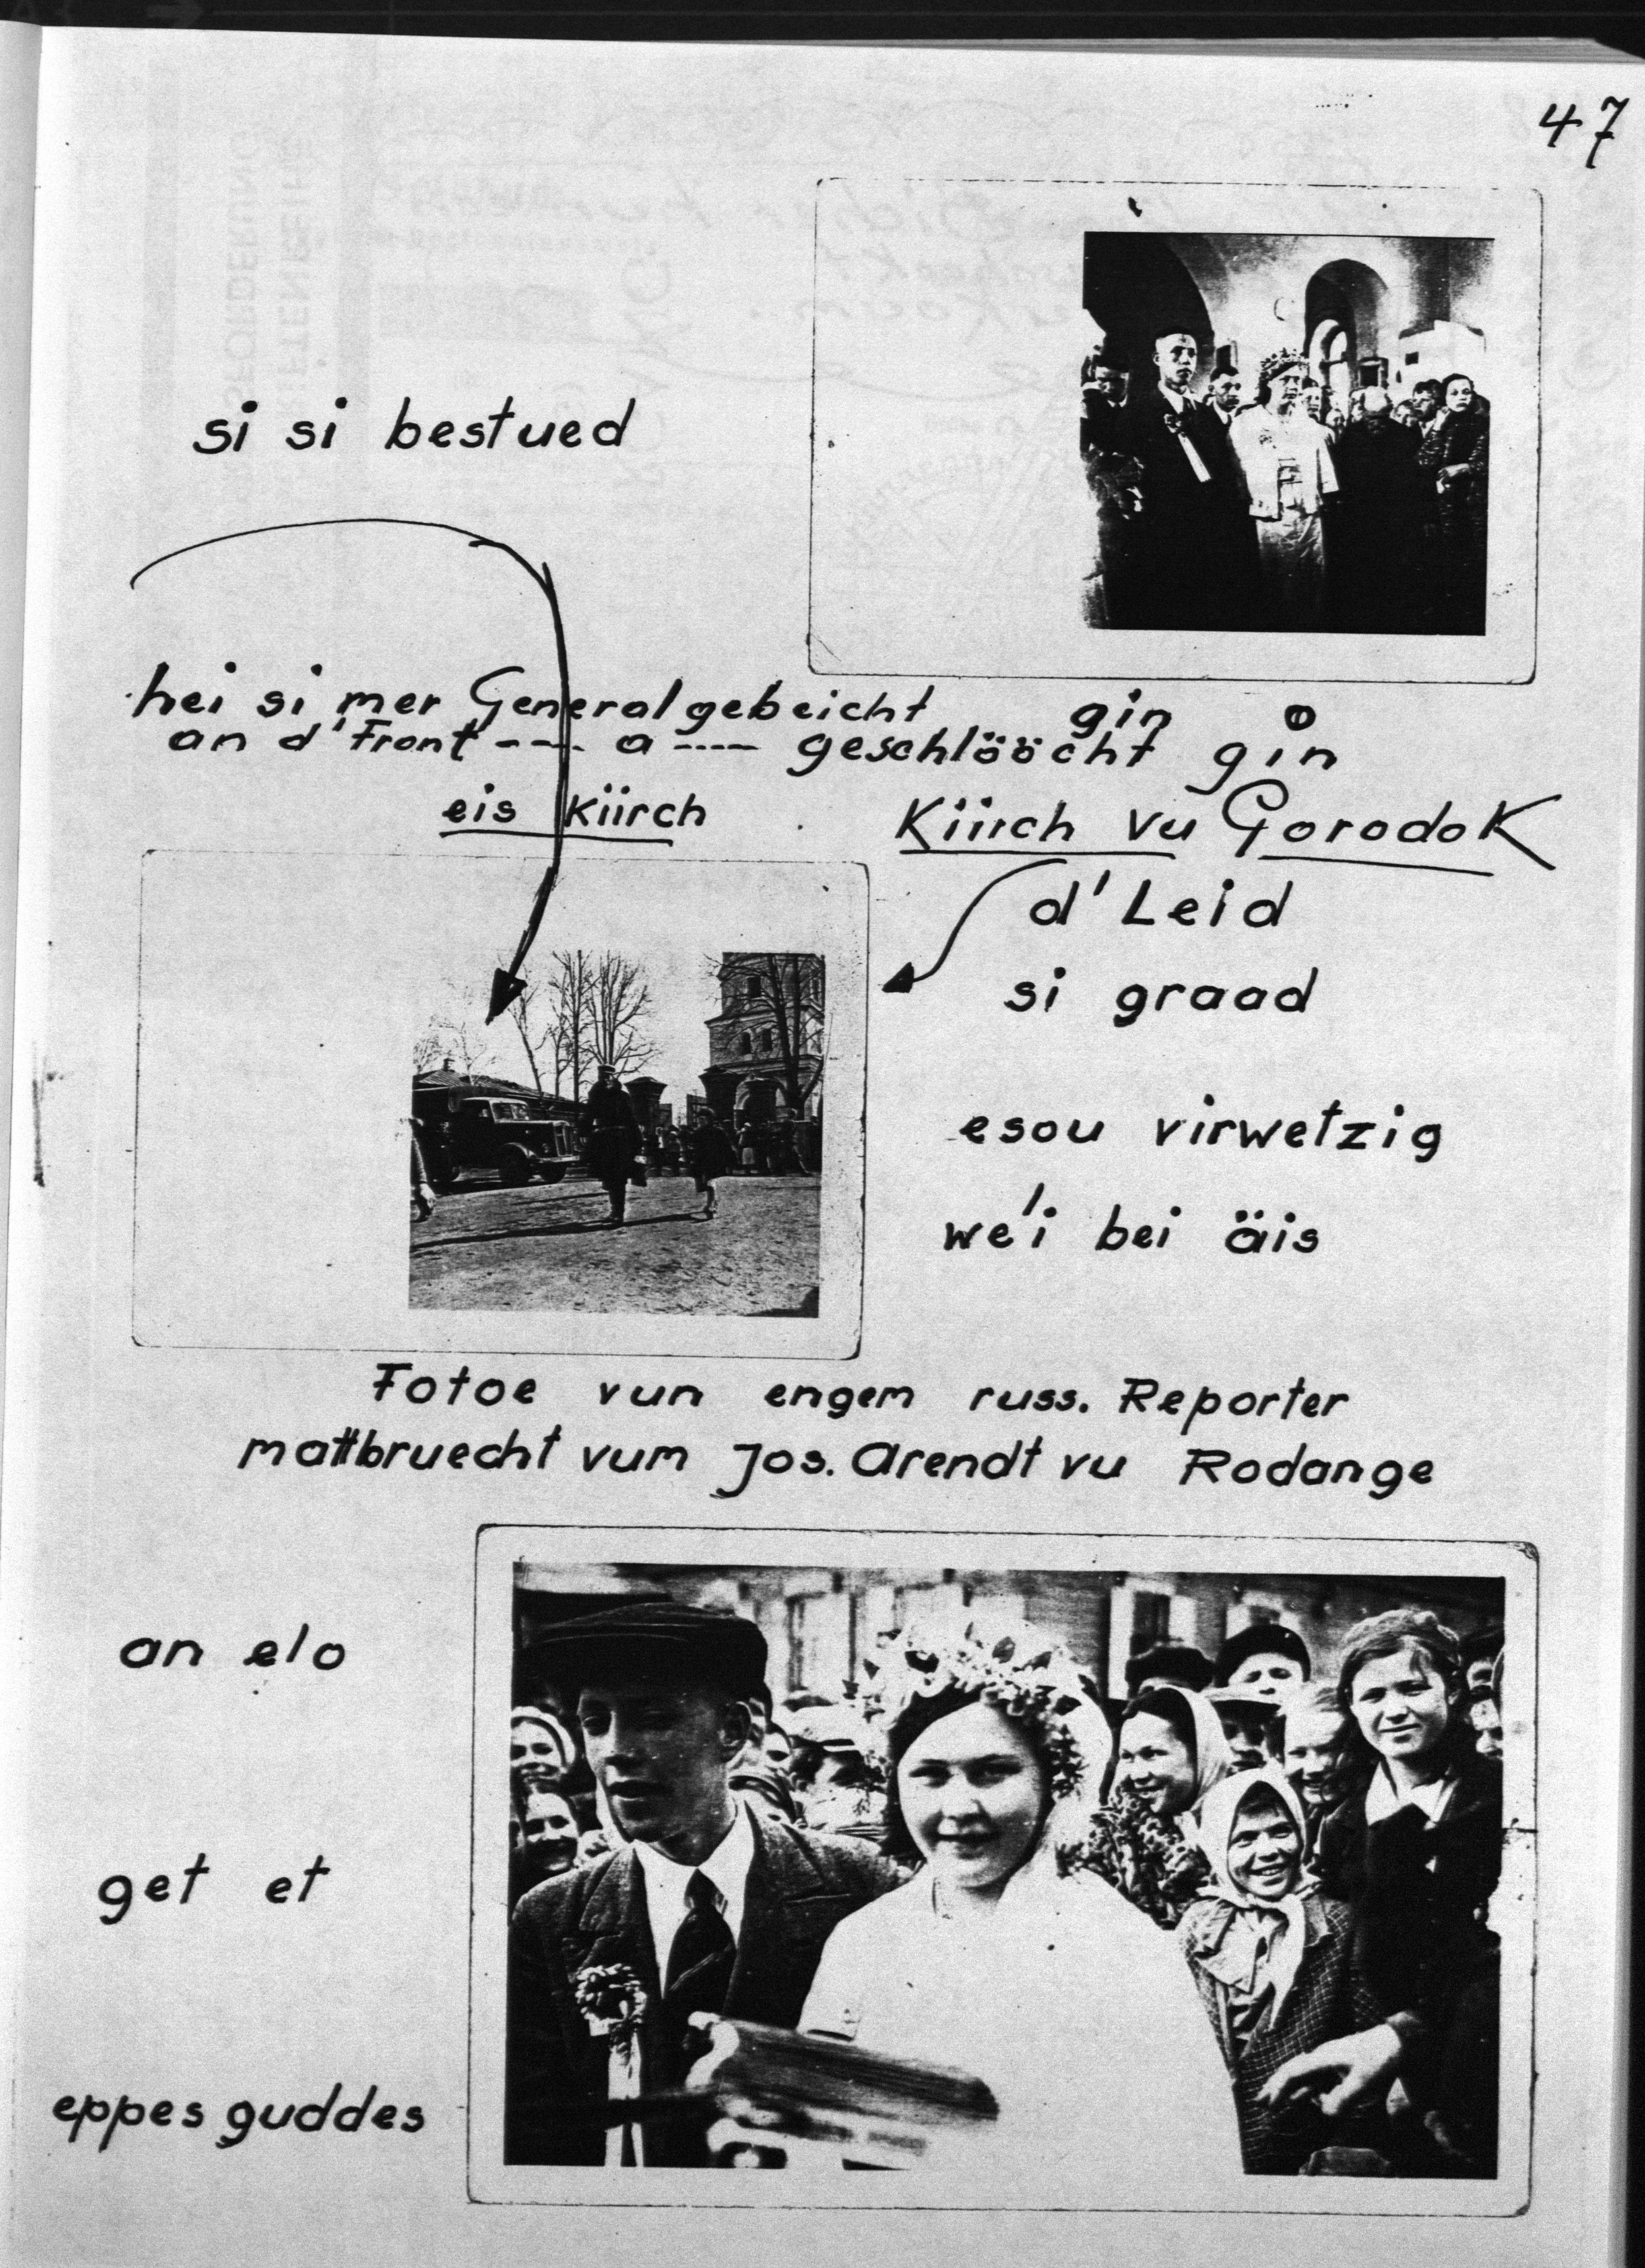 47
si si bestued
hei si mer Generalgebeicht gin o
an d'Front ---- a ---- geschlööcht gin
eis Kiirch
Kiirch vu Gorodok
d'Leid
si graad
esou virwetzig
we'i bei äis
Fotoe vun engem russ. Reporter
mattbruecht vum Jos. Arendt vu Rodange
an elo
get et
eppes guddes